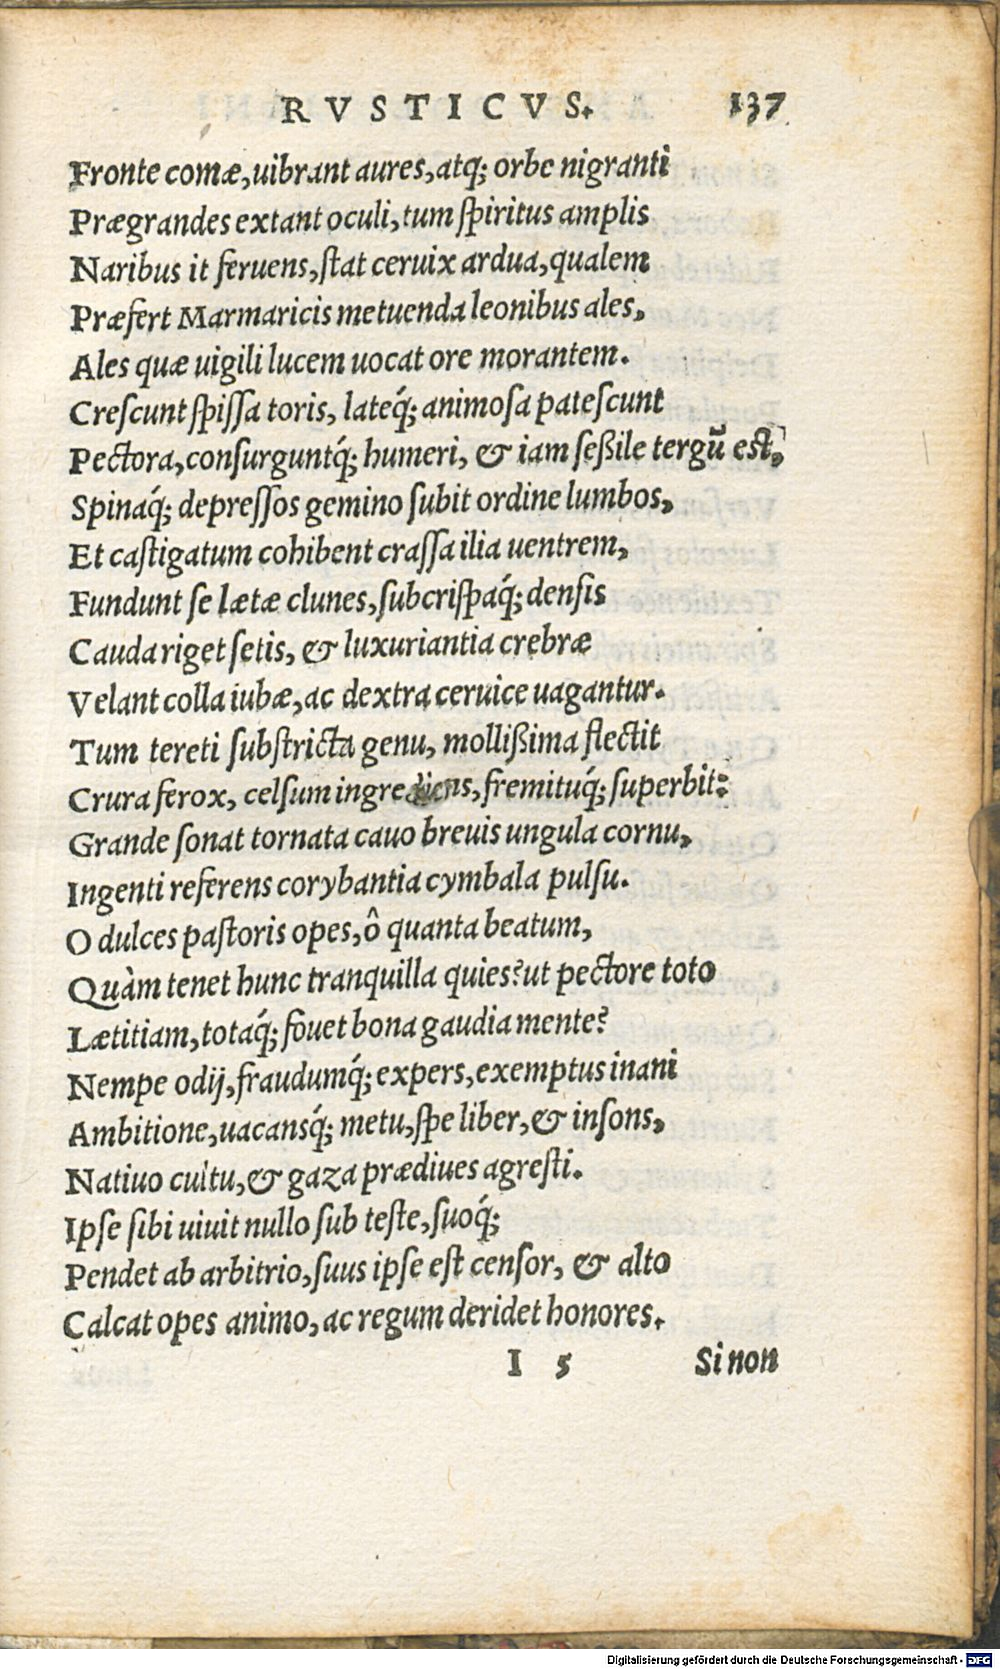 RVSTICVS. 137
Fronte comæ, uibrant aures, atq; orbe nigranti
Prægrandes extant oculi, tum ſpiritus amplis
Naribus it feruens, ſtat ceruix ardua, qualem
Præfert Marmaricis metuenda leonibus ales,
Ales quæ uigili lucem uocat ore morantem.
Creſcunt ſpiſſa toris, lateq́; animoſa pateſcunt
Pectora, conſurguntq́; humeri, & iam ſeßile tergū eſt,
Spinaq́; depreſſos gemino ſubit ordine lumbos,
Et caſtigatum cohibent craſſa ilia uentrem,
Fundunt ſe lætæ clunes, ſubcriſpaq́; denſis
Cauda riget ſetis, & luxuriantia crebræ
Velant colla iubæ, ac dextra ceruice uagantur.
Tum tereti ſubſtricta genu, mollißima flectit
Crura ferox, celſum ingrediens, fremituq́; ſuperbit:
Grande ſonat tornata cauo breuis ungula cornu,
Ingenti referens corybantia cymbala pulſu.
O dulces paſtoris opes, ô quanta beatum,
Quàm tenet hunc tranquilla quies? ut pectore toto
Lætitiam, totaq́; fouet bona gaudia mente?
Nempe odij, fraudumq́; expers, exemptus inani
Ambitione, uacansq́; metu, ſpe liber, & inſons,
Natiuo cultu, & gaza prædiues agreſti.
Ipſe ſibi uiuit nullo ſub teſte, ſuoq́;
Pendet ab arbitrio, ſuus ipſe eſt cenſor, & alto
Calcat opes animo, ac regum deridet honores.
I 5 Si non
Digitalisierung gefördert durch die Deutsche Forschungsgemeinschaft - DFG